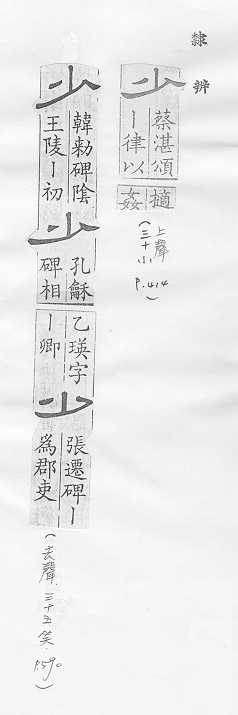 隸辨
少
蔡湛頌
丨律以
擿
姦
(上聲
三十小
P.414)
少
韓勑碑陰
王陵丨初
少
孔龢
碑相
乙瑛字
丨卿
少
張遷碑丨
爲郡吏
(去聲.三十五笑.P.590)